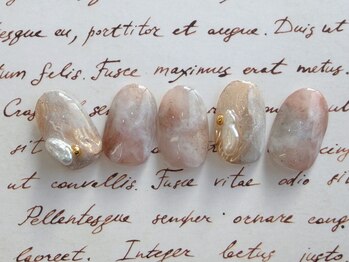 esque eu, porttitor et augue. Duis ut
tum felis. Fusce maximus erat metus.
Cras
sit
ut convallis. Fusce vitae odio si
Pellentesque semper ornare cong
laoreet. Integer lectus justo